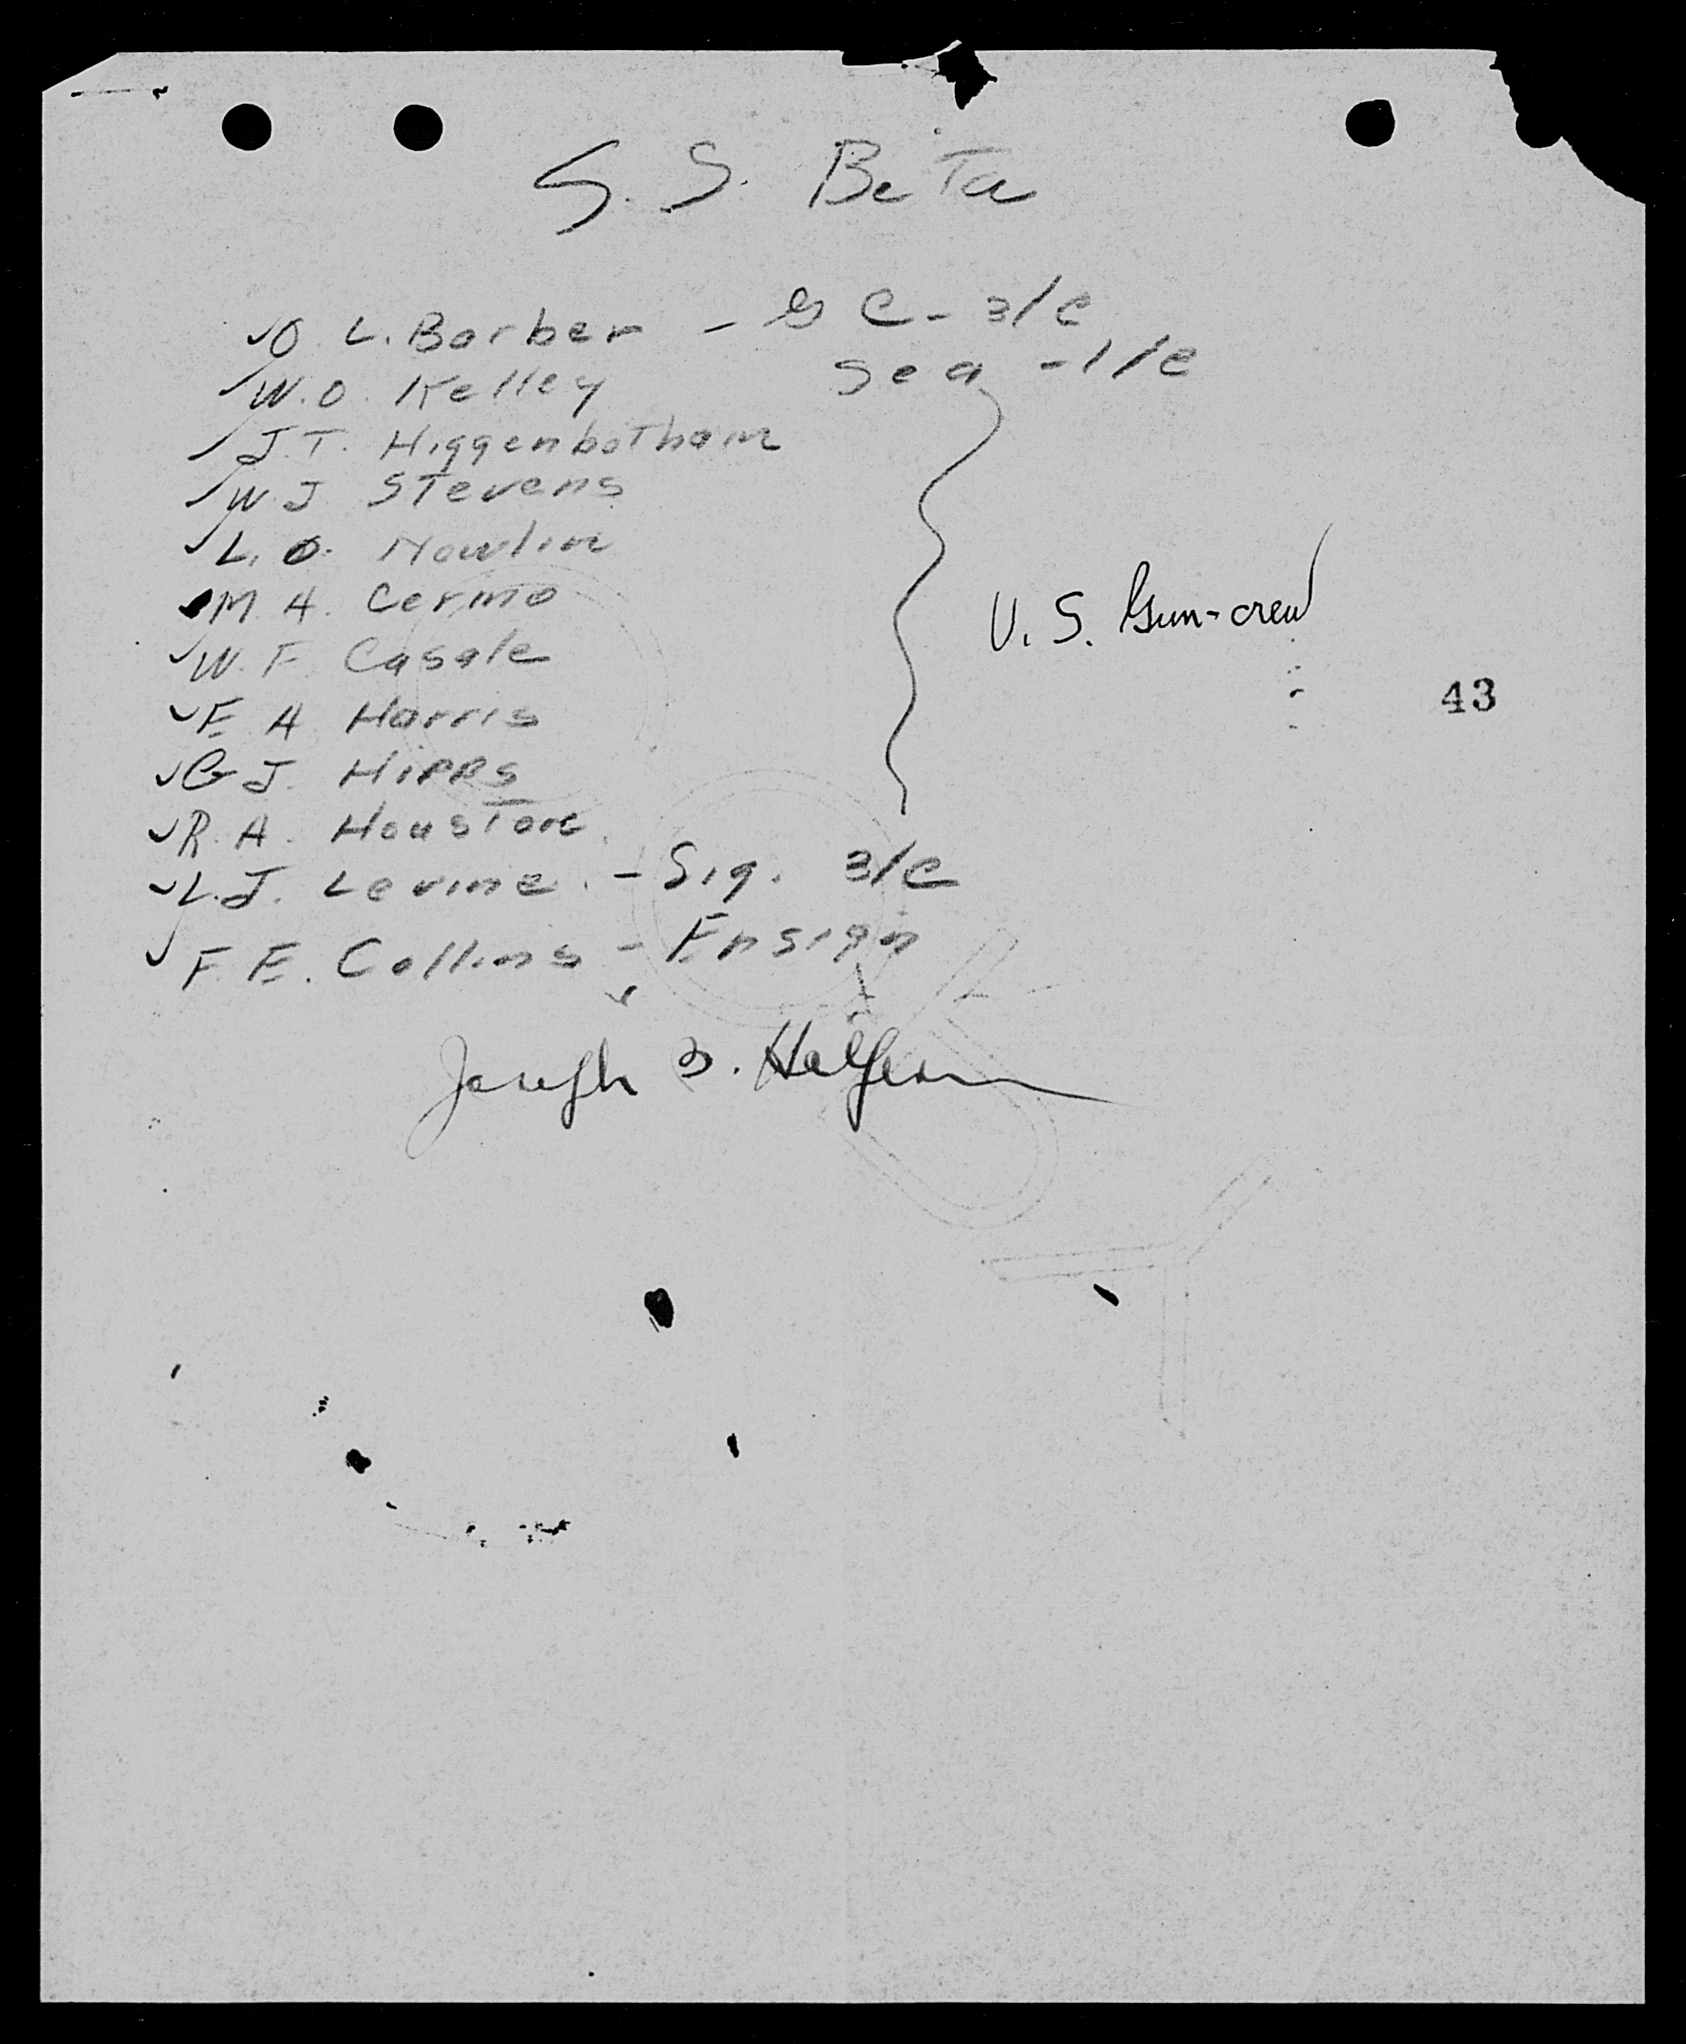 S. S. Beta
✓O. L. Barber - G C - 3/C
✓W. O. Kelley Sea - 1/C
✓J. T. Higgenbotham
✓W. J. Stevens
✓L. O. Nowlin
M. A. Cermo
✓W. F. Casale
✓E. A. Harris
✓G. J. Hipps
✓R. A. Houston
✓L. J. Levine - Sig. 3/C
✓F. E. Collins - Ensign
U. S. Gun-crew
43
Joseph